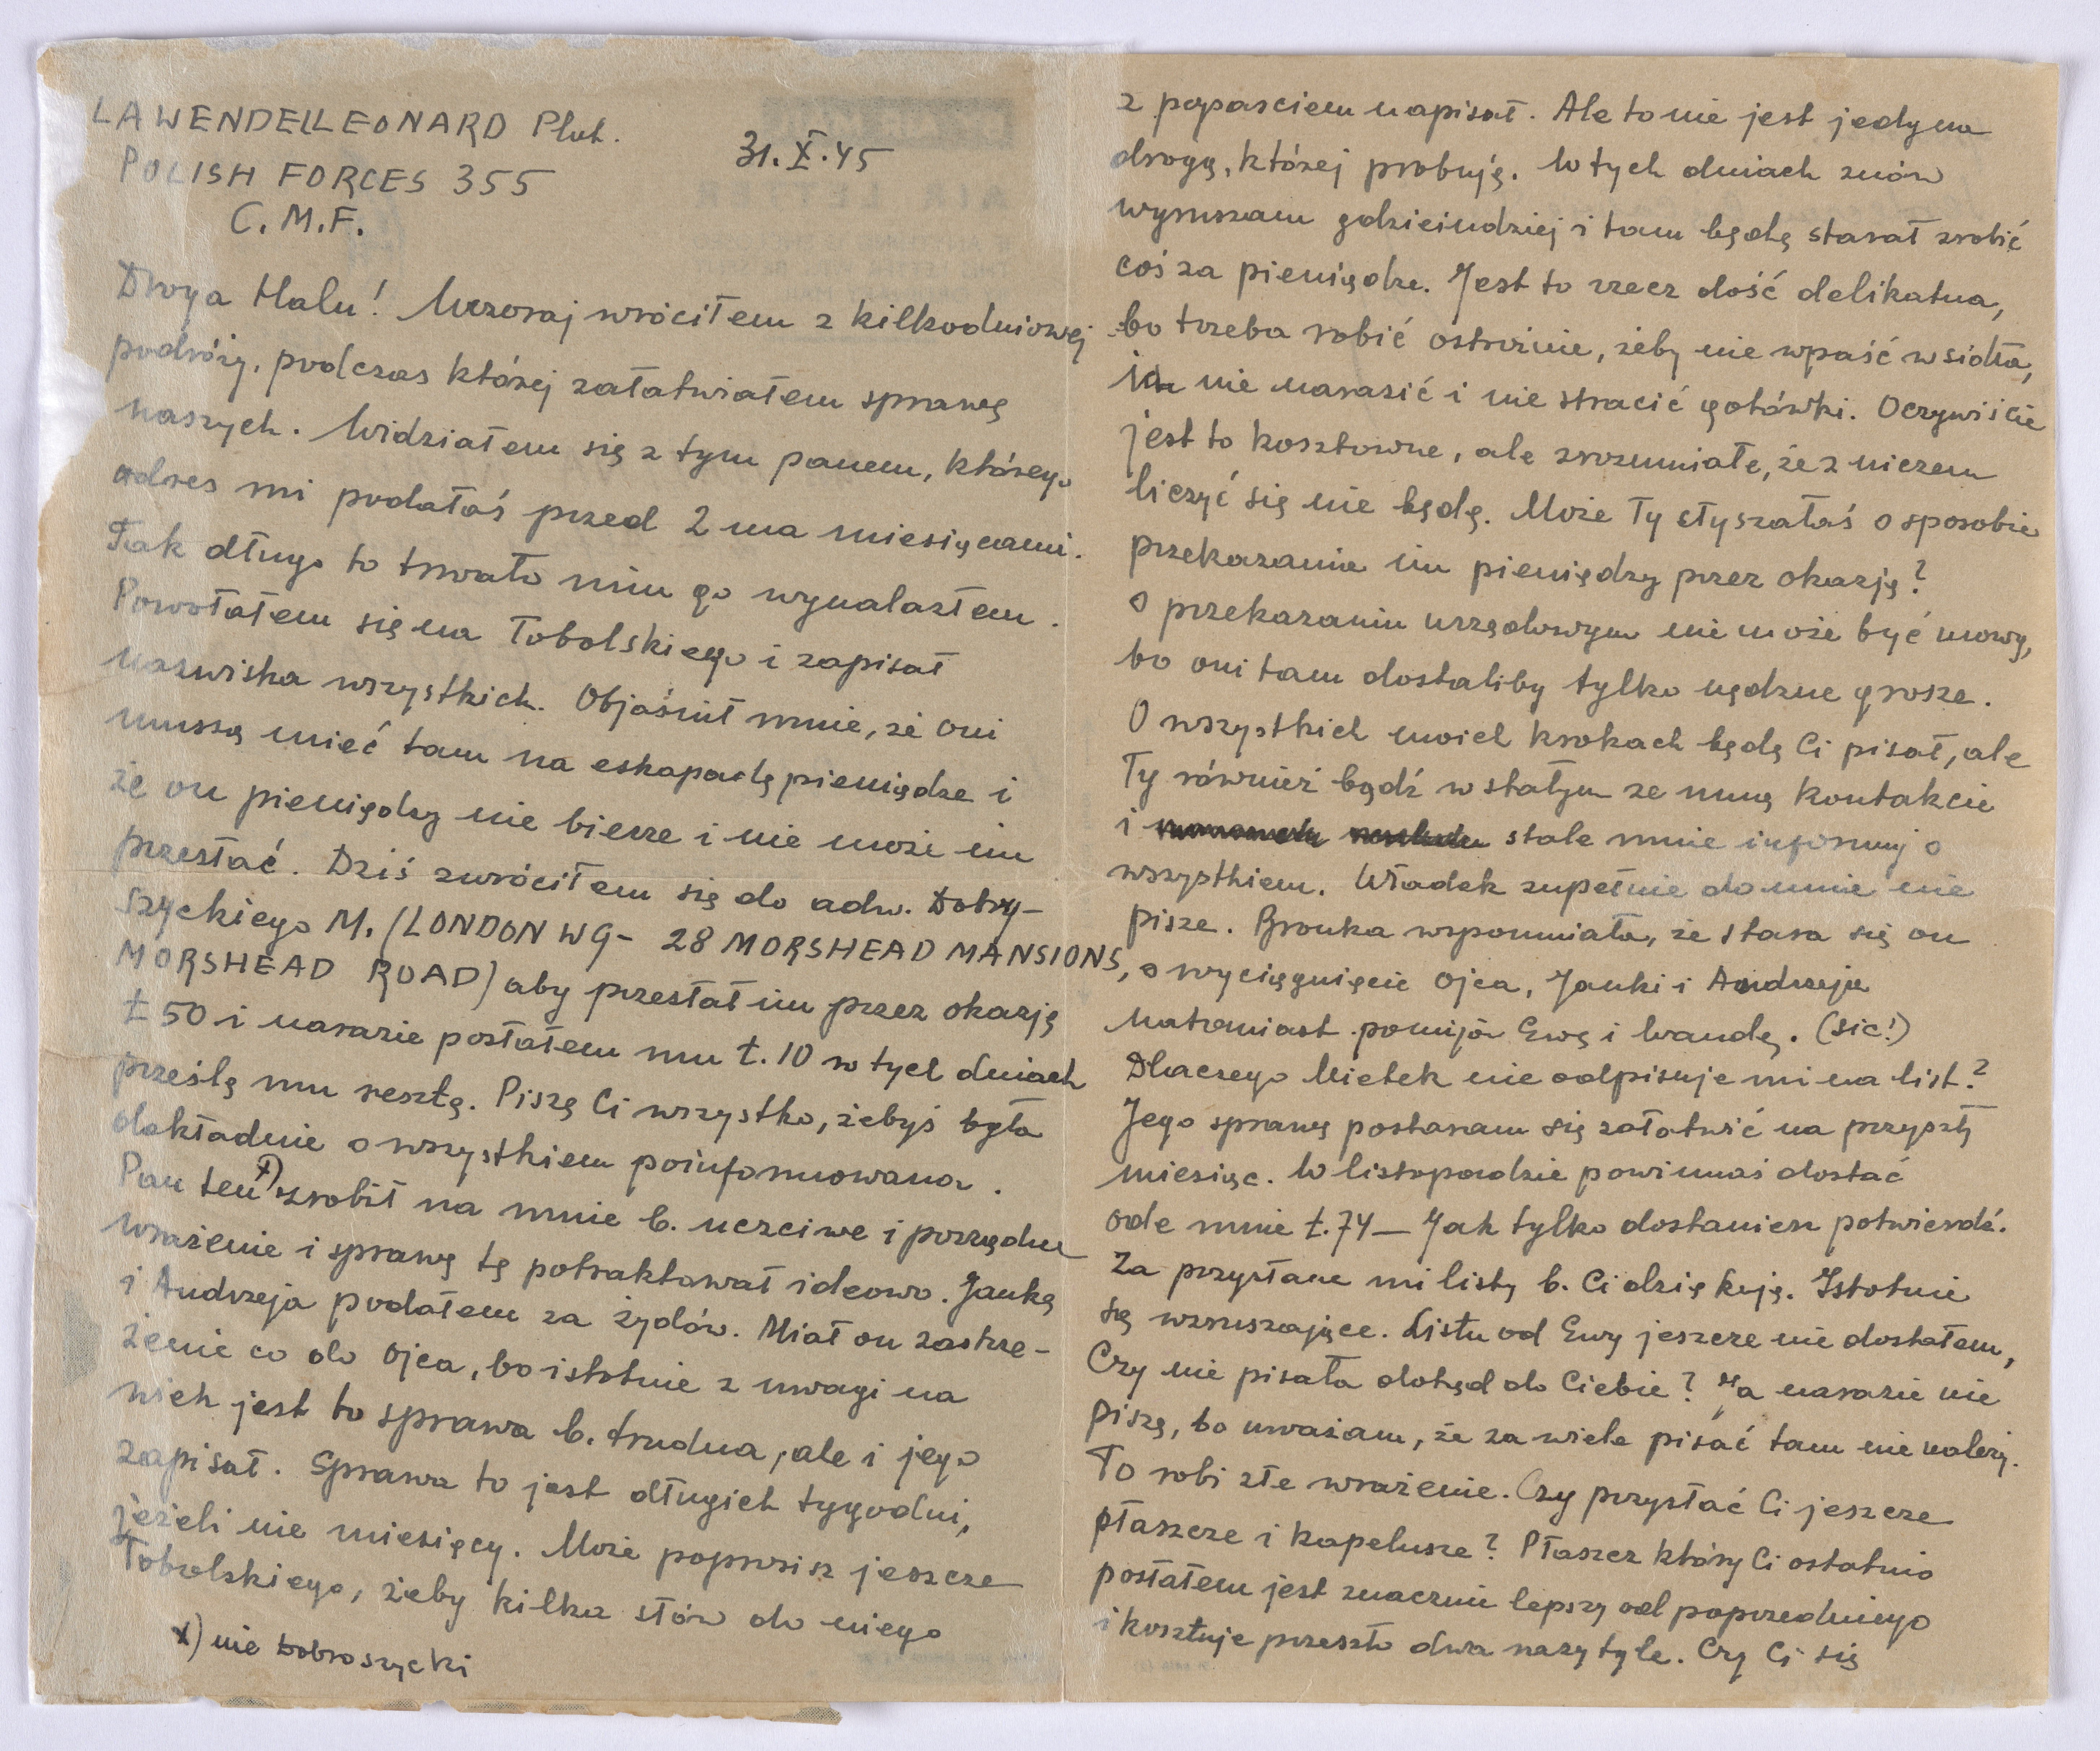 LAWENDEL LEONARD Plut.
31.X.45
POLISH FORCES 355
C.M.F.
Droga Halu! Wczoraj wróciłem z kilkodniowej
podróży, podczas której załatwiałem sprawę
naszych. Widziałem się z tym panem, którego
adres mi podałaś przed 2 ma miesiącami.
Tak długo to trwało nim go wynalazłem.
Powołałem się na Tobolskiego i zapisał
nazwiska wszystkich. Objaśnił mnie, że oni
muszą mieć tam na eskapadę pieniądze i
że on pieniędzy nie bierze i nie może im
przesłać. Dziś zwróciłem się do adw. Dobry-
szyckiego M. (LONDON W9 - 28 MORSHEAD MANSIONS,
MORSHEAD ROAD) aby przesłał im przez okazję
£ 50 i narazie posłałem mu £. 10 w tych dniach
prześlę mu resztę. Piszę Ci wszystko, żebyś była
dokładnie o wszystkiem poinformowana.
Pan ten x) zrobił na mnie b. uczciwe i porządne
wrażenie i sprawę tę potraktował ideowo. Jankę
i Andrzeja podałem za żydów. Miał on zastrze-
żenie co do Ojca, bo istotnie z uwagi na
wiek jest to sprawa b. trudna, ale i jego
zapisał. Sprawa to jest długich tygodni,
jeżeli nie miesięcy. Może poprosisz jeszcze
Tobolskiego, żeby kilka słów do niego
x) nie Dobroszycki
z poparciem napisał. Ale to nie jest jedyna
droga, której probuję. W tych dniach znów
wyruszam gdzieindziej i tam będę starał zrobić
coś za pieniądze. Jest to rzecz dość delikatna,
bo trzeba robić ostrożnie, żeby nie wpaść w sidła,
ich nie narazić i nie stracić gotówki. Oczywiście
jest to kosztowne, ale zrozumiałe, że z niczem
liczyć się nie będę. Może Ty słyszałaś o sposobie
przekazania im pieniędzy przez okazję?
O przekazaniu urzędowym nie może być mowy,
bo oni tam dostaliby tylko nędzne grosze.
O wszystkich moich krokach będę Ci pisał, ale
Ty również bądź w stałym ze mną kontakcie
i stale mnie informuj o
wszystkiem. Władek zupełnie do mnie nie
pisze. Bronka wspomniała, że stara się on
o wyciągnięcie Ojca, Janki i Andrzeja
natomiast pomija Ewę i Wandę. (sic!)
Dlaczego Mietek nie odpisuje mi na list?
Jego sprawę postaram się załatwić na przyszły
miesiąc. W listopadzie powinnaś dostać
ode mnie £.74 — Jak tylko dostaniesz potwierdź.
Za przysłane mi listy b. Ci dziękuję. Istotnie
są wzruszające. Listu od Ewy jeszcze nie dostałem,
Czy nie pisała dotąd do Ciebie? Ja narazie nie
piszę, bo uważam, że za wiele pisać tam nie należy.
To robi złe wrażenie. Czy przysłać Ci jeszcze
płaszcze i kapelusze? Płaszcz który Ci ostatnio
posłałem jest znacznie lepszy od poprzedniego
i kosztuje przeszło dwa razy tyle. Czy Ci się